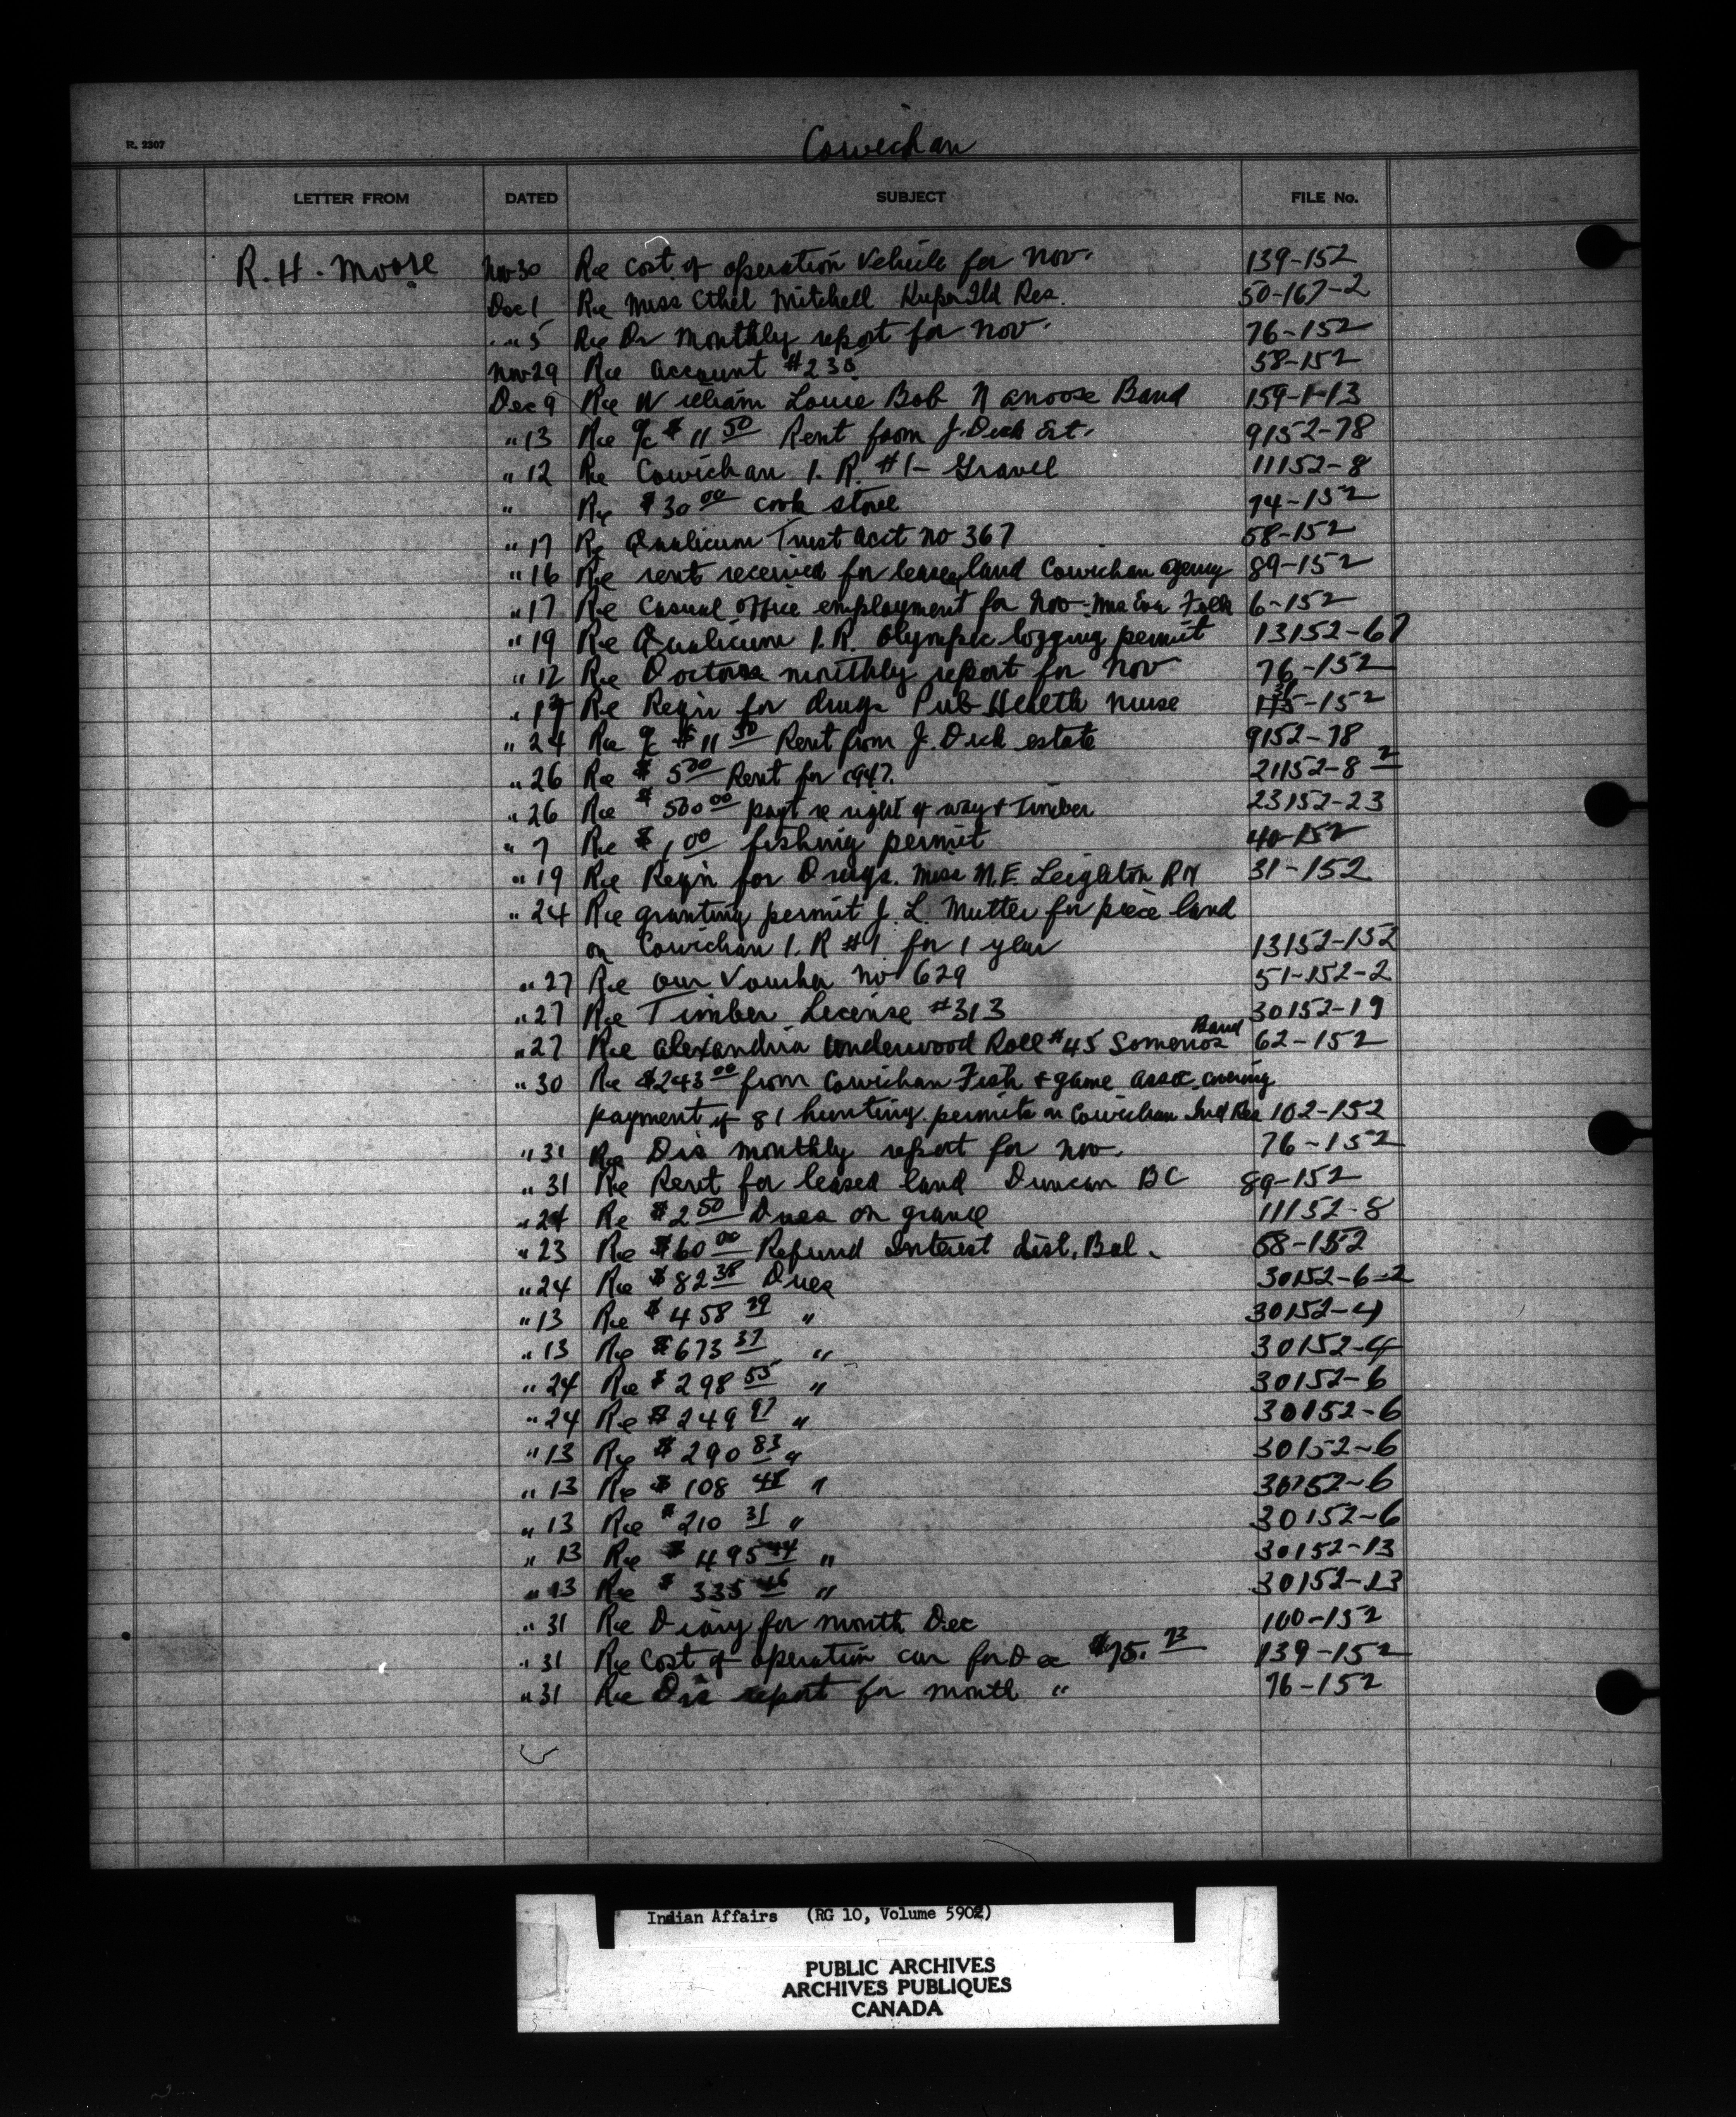 Cowichan
R. 2307
LETTER FROM DATED SUBJECT FILE No.
R. H. Moore Nov 30 Re cost of operation Vehicle for Nov. 139-152
Dec 1 Re Miss Ethel Mitchell Kuper Isld Res. 50-167-2
" 5 Re Dr Monthly report for Nov. 76-152
Nov 29 Re account #238 58-152
Dec 9 Re William Louie Bob Nanoose Band 159-1-13
" 13 Re % $11 50 Rent from J. Dick Est. 9152-78
" 12 Re Cowichan I. R. #1 - Gravel 11152-8
" Re $30 00 cook stove 74-152
" 17 Re Qualicum Trust acct no 367 58-152
" 16 Re rent received for leased land Cowichan agency 89-152
" 17 Re Casual office employment for Nov - Mrs Eva 6-152
" 19 Re Qualicum I.R. Olympic logging permit 13152-67
" 12 Re Doctors monthly report for Nov 76-152
" 17 Re Reqn for drugs Pub Health nurse -152
" 24 Re % $11 50 Rent from J. Dick estate 9152-78
" 26 Re $5 00 Rent for 1947. 21152-8 2
" 26 Re $500 00 payt re right of way & Timber 23152-23
" 7 Re $1 00 fishing permit 40-152
" 19 Re Reqn for Drugs. Miss M.E. Leighton RN 31-152
" 24 Re granting permit J. L. Mutter for piece land
on Cowichan I. R #1 for 1 year 13152-152
" 27 Re our Voucher no 629 51-152-2
" 27 Re Timber License #313 30152-19
" 27 Re Alexandria Underwood Roll #45 Somenos Band 62-152
" 30 Re $243 00 from Cowichan Fish & game assoc. covering
payment of 81 hunting permits on Cowichan Ind Res 102-152
" 31 Re Drs monthly report for Nov. 76-152
" 31 Re Rent for leased land Duncan BC 89-152
" 24 Re $2 50 Dues on gravel 11152-8
" 23 Re $60 00 Refund Interest dist. Bal. 58-152
" 24 Re $82 38 Dues 30152-6-2
" 13 Re $458 29 " 30152-4
" 13 Re $673 37 " 30152-4
" 24 Re $298 55 " 30152-6
" 24 Re $249 97 " 30152-6
" 13 Re $290 83 " 30152-6
" 13 Re $108 48 " 30152-6
" 13 Re $210 31 " 30152-6
" 13 Re $495 44 " 30152-13
" 13 Re $335 46 " 30152-13
" 31 Re Diary for month Dec 100-152
" 31 Re Cost of operation car for Dec $75. 73 139-152
" 31 Re Drs report for month " 76-152
Indian Affairs (RG 10, Volume 5902)
PUBLIC ARCHIVES
ARCHIVES PUBLIQUES
CANADA